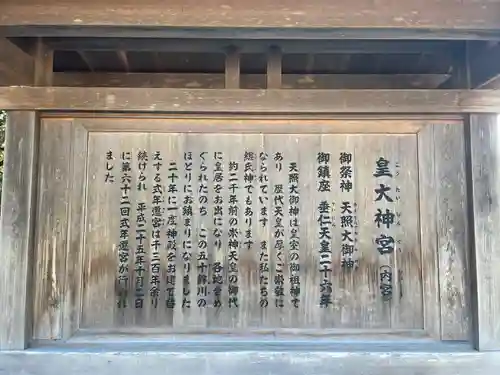 皇大神宮(内宮)
こう たい じん ぐう
御祭神 天照大御神
御鎮座 垂仁天皇二十六年
天照大御神は皇室の御祖神で
あり 歴代天皇が厚くご崇敬に
なられています また私たちの
総氏神でもあります
約二千年前の崇神天皇の御代
に皇居をお出になり 各地をめ
ぐられたのち この五十鈴川の
ほとりにお鎮まりになりました
二十年に一度神殿をお建て替
えする式年遷宮は千三百年余り
続けられ 平成二十五年十月二日
に第六十二回式年遷宮が行われ
ました